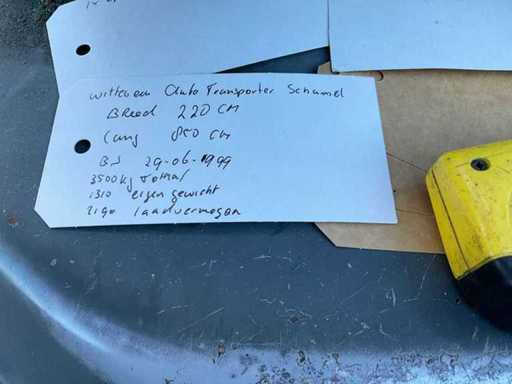 wittevee Auto Transporter Schamel
Breed 220 CM
Lang 850 CM
BJ 29-06-1999
3500kg Totaal
1310 eigen gewicht
2190 laadvermogen